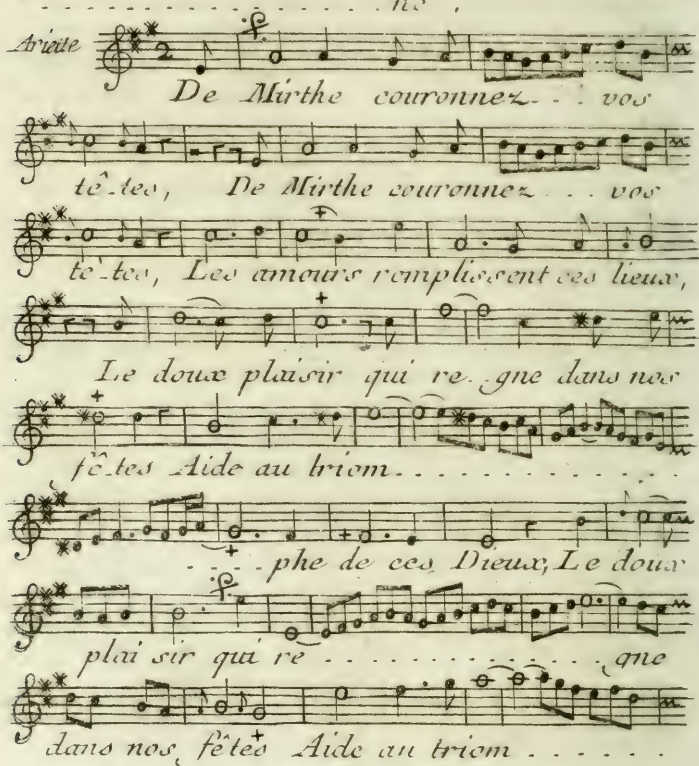 ns,
Ariette
2
De Mirthe couronnez... vos
tê-tes, De Mirthe couronnez... vos
tê-tes, Les amours remplissent ces lieux,
Le doux plaisir qui re..gne dans nos
fê-tes Aide au triom..............
....phe de ces Dieux, Le doux
plai sir qui re.............gne
dans nos fêtes Aide au triom......